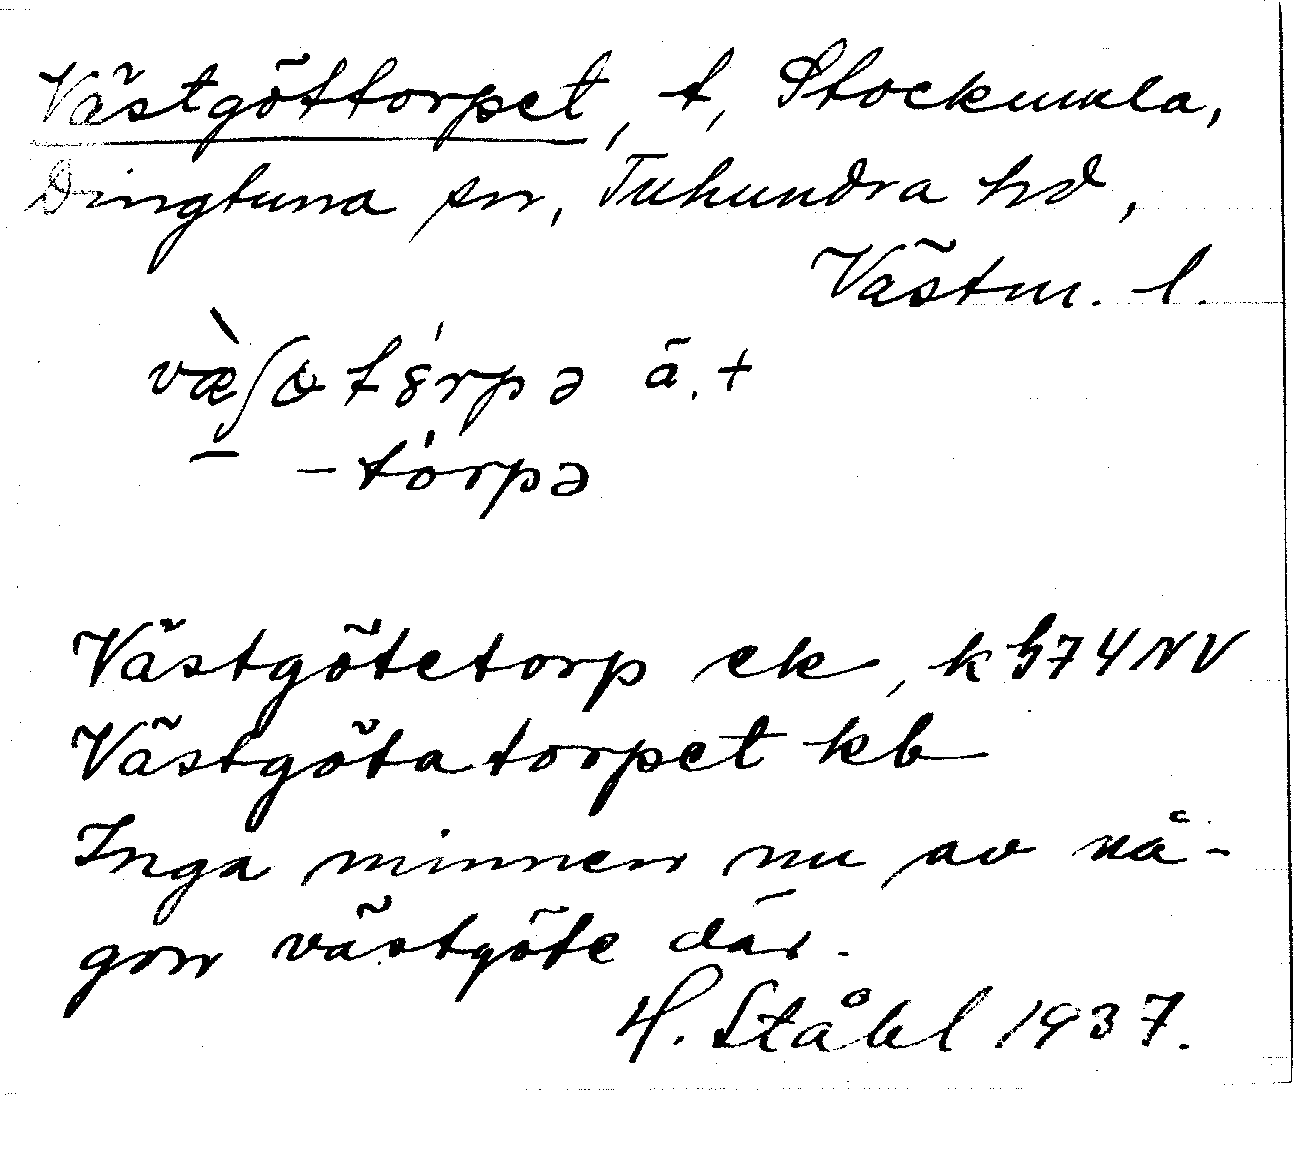 Västgöttorpet, t, Stockumla,
Dingtuna sn, Tuhundra hd,
Västm. l.
væ̀ʃɷtȣ́rpə ä. +
– -tórpə
Västgötetorp ek, k h74NV
Västgötatorpet kb
Inga minnen nu av nå-
gon västgöte där.
H. Ståhl 1937.